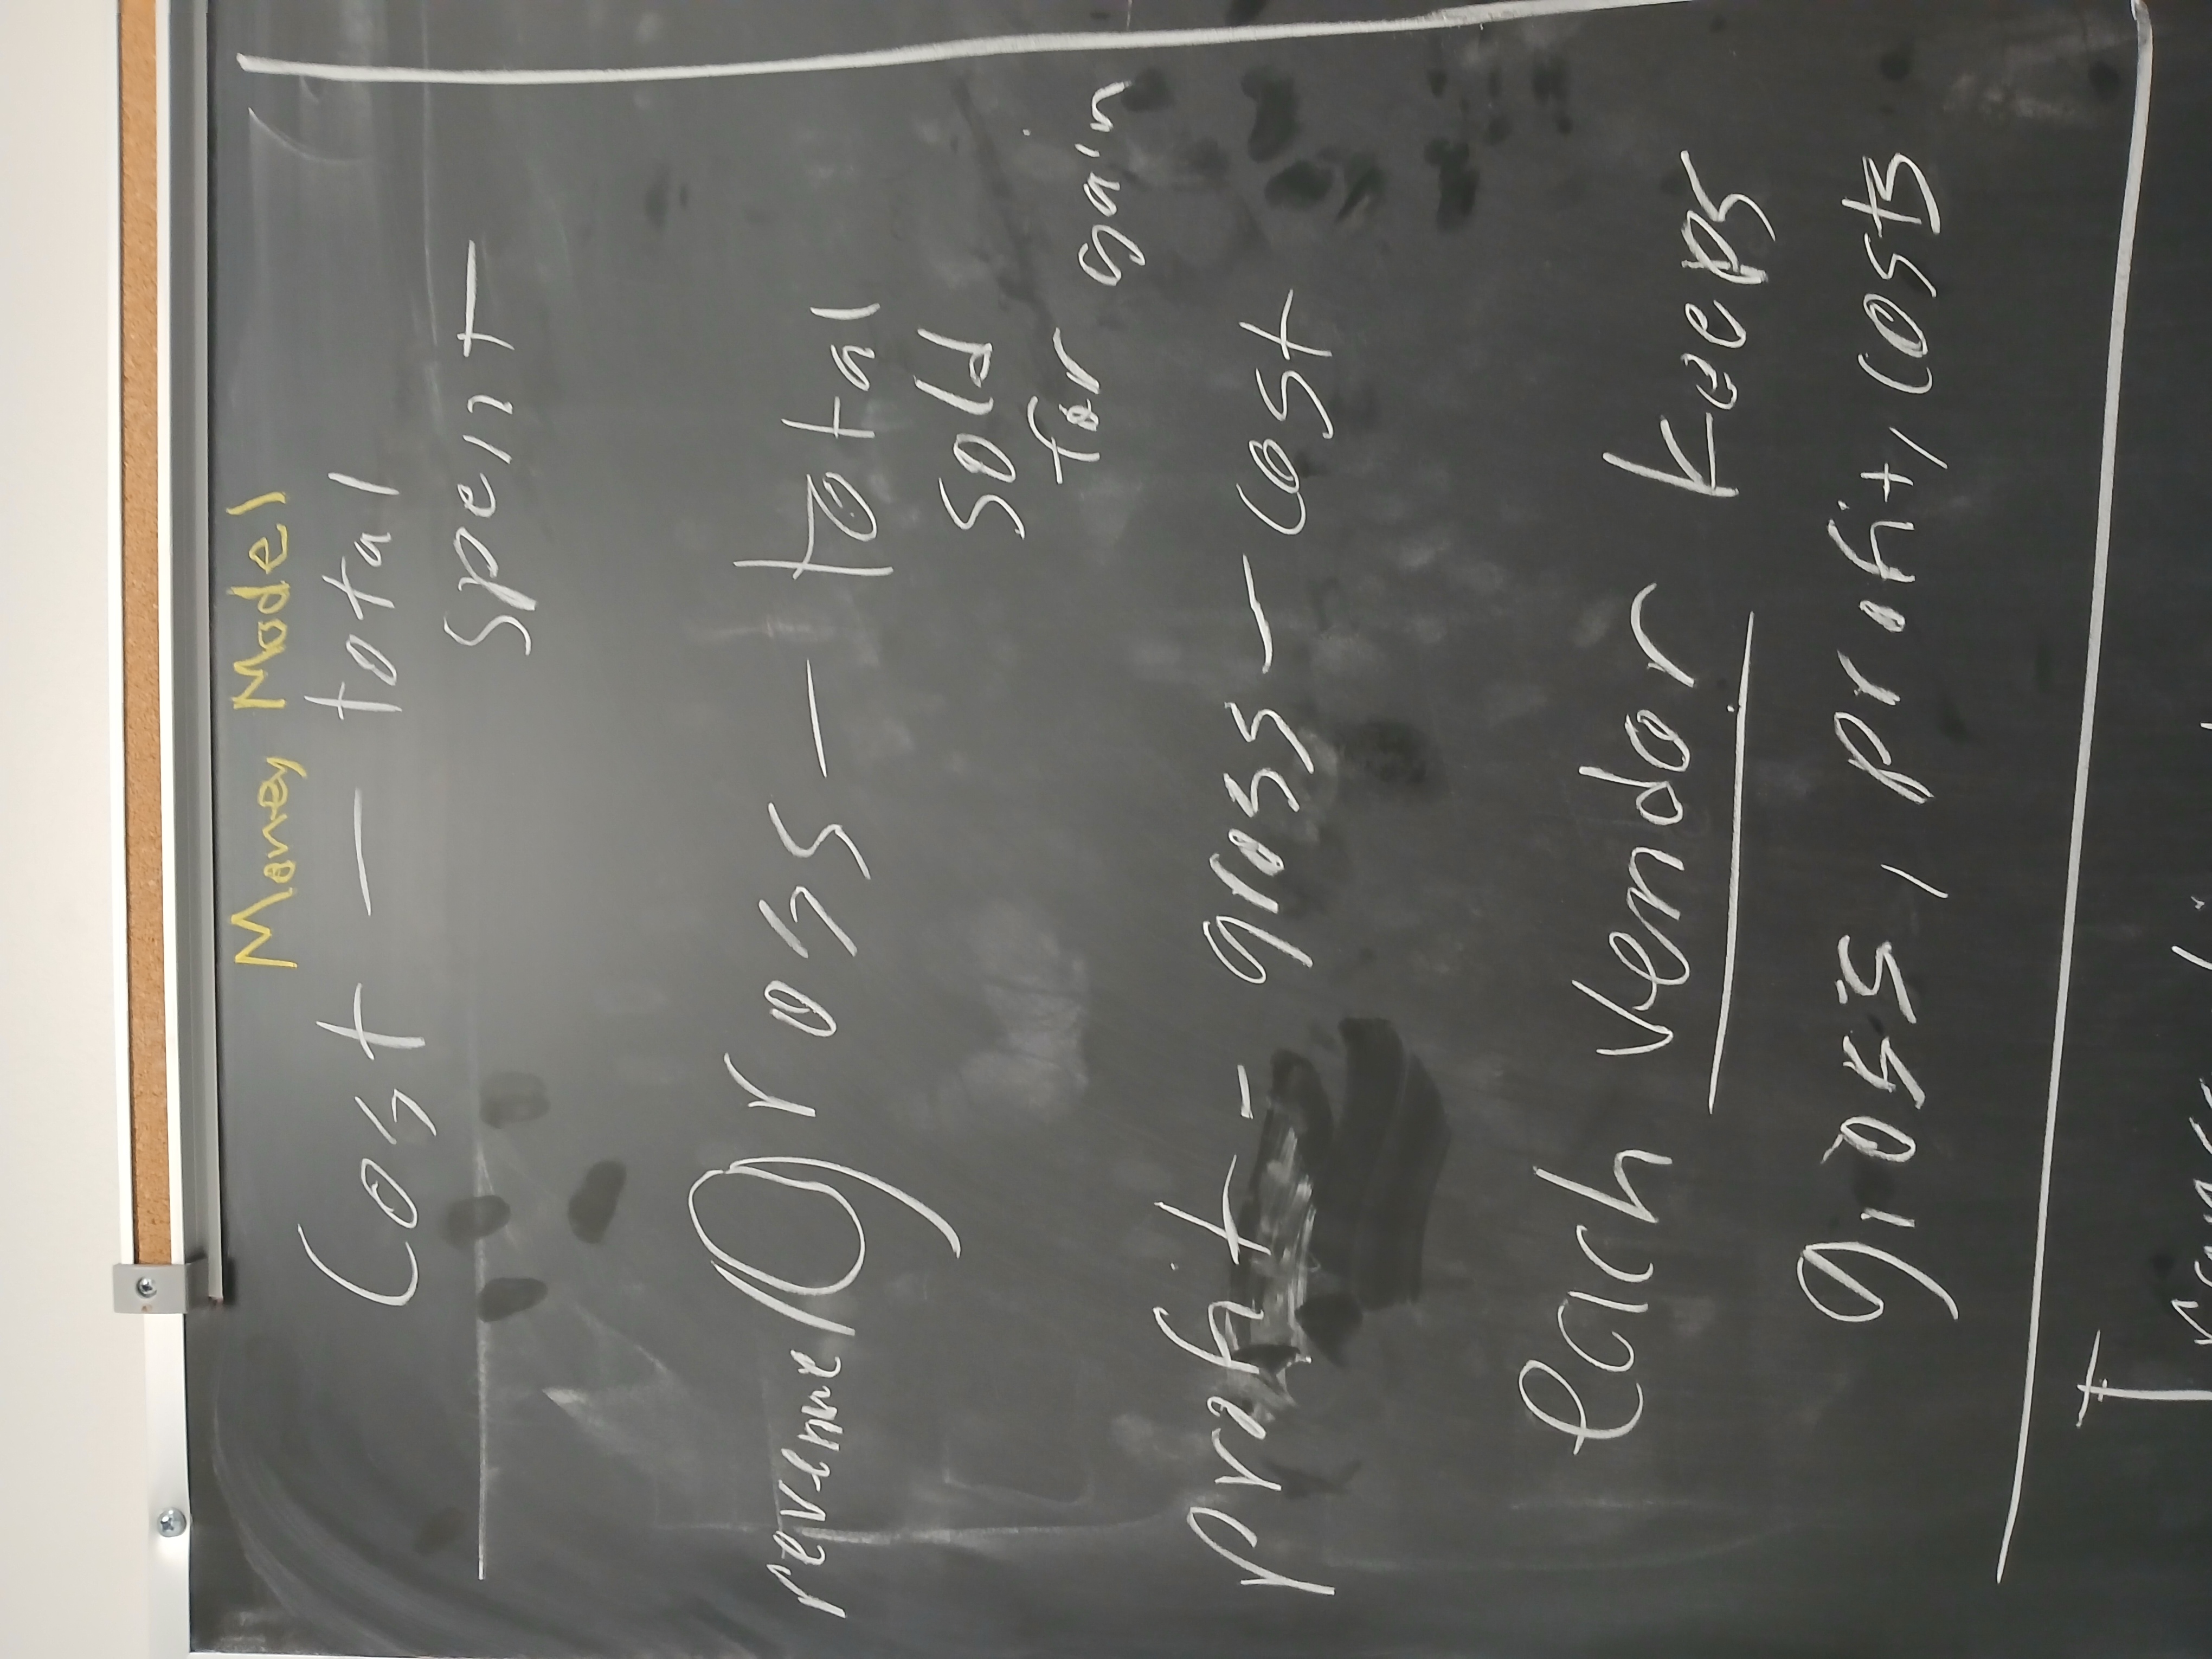 Money Model
Cost — total
spent
revenue/gross — total
sold
for gain
profit - gross - cost
each vendor keeps
gross, profit, costs